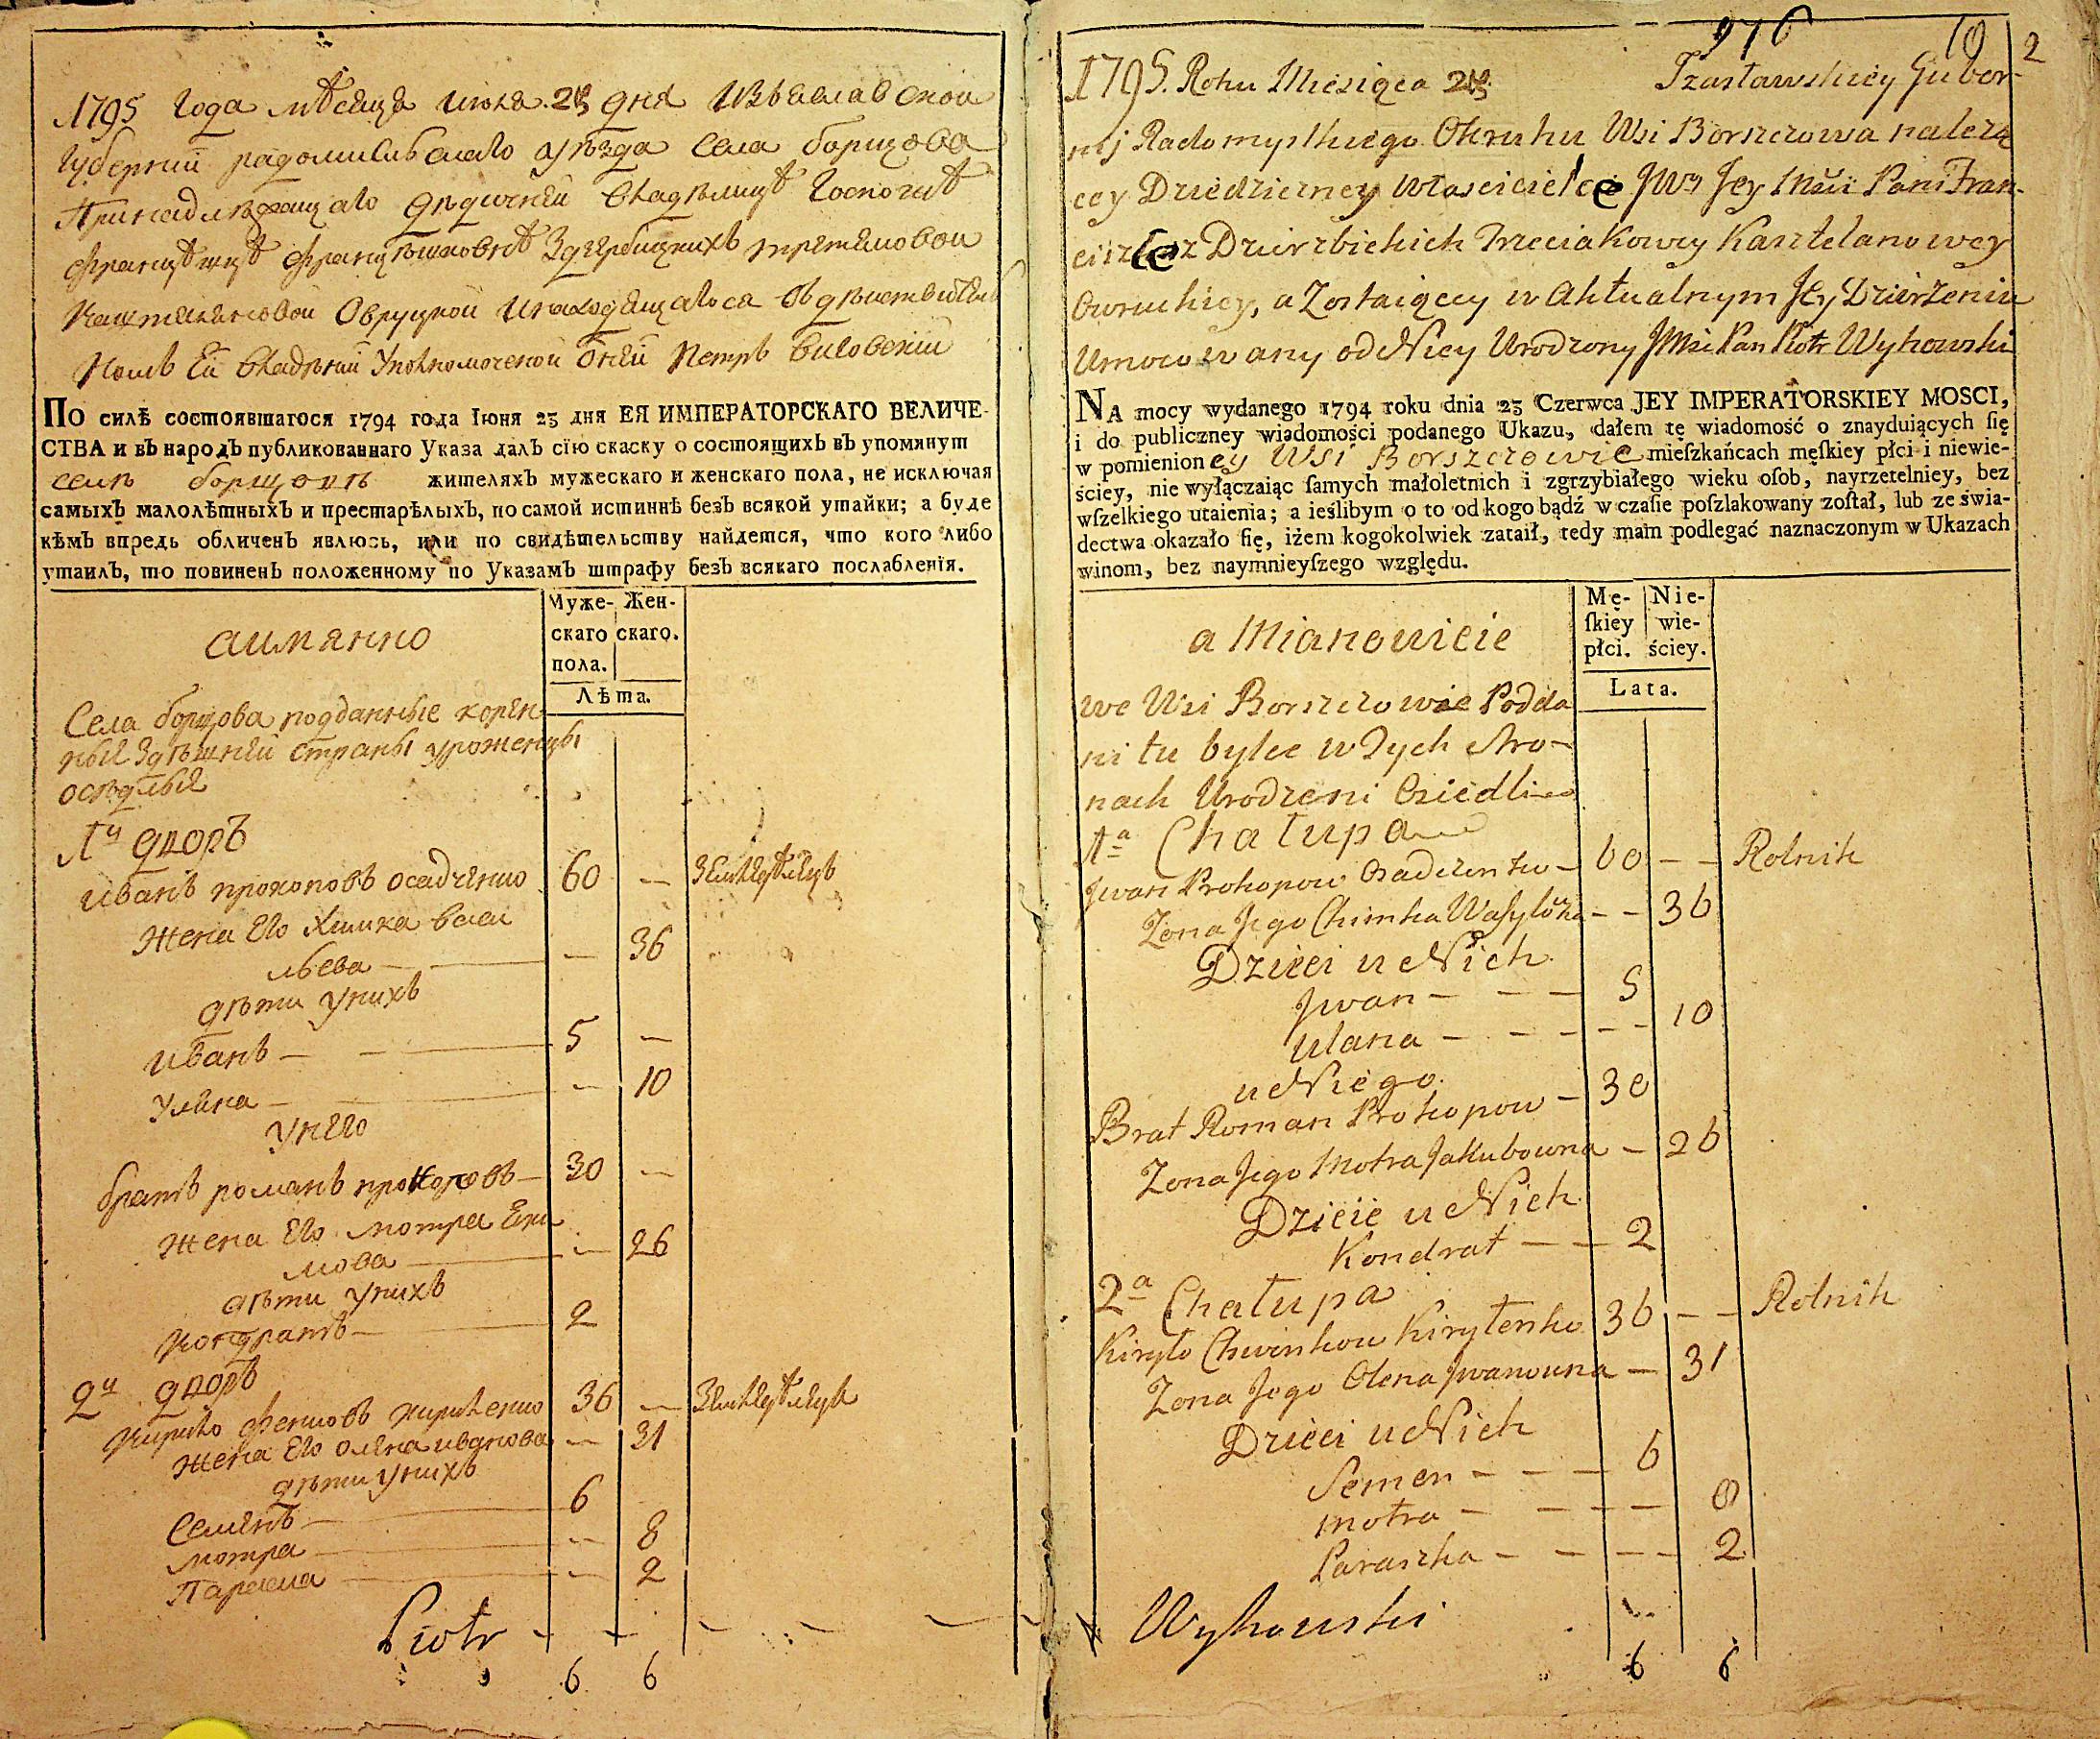 1795 года мѣсяца июля 25 дня Изъяславской
Губернии радомисльскаго уѣзда села борщова
Принадлѣжащаго дѣдичнѣй владѣлицѣ Госпожѣ
Францѣшцѣ Францѣшковнѣ Здзербицкихъ третяковой
Каштеляновой Овруцкой и находящагося въ дѣиствител
номъ Ей владѣнии Уполномоченой ѿ нѣй Петръ виговский
По силѣ состоявшагося 1794 года Іюня 23 дня ЕЯ ИМПЕРАТОРСКАГО ВЕЛИЧЕ-
СТВА и въ народъ публикованнаго Указа далъ сію скаску о состоящихъ въ упомянут
селѣ борщовѣ жителяхъ мужескаго и женскаго пола, не исключая
самыхъ малолѣтныхъ и престарѣлыхъ, по самой истиннѣ безъ всякой утайки; а буде
кѣмъ впредь обличенъ явлюсь, или по свидѣтельству найдется, что кого либо
утаилъ, то повиненъ положенному по Указамъ штрафу безъ всякаго послабленія.
аимянно
Муже- Жен-
скаго скаго.
пола.
Лѣта.
Села борщова подданные корен
ныя здѣшнѣй страны уроженцы
осѣдлыя
1й дворъ
иванъ прокоповъ осадченко 60 — Земледѣлецъ
жена Его Химка васи
льева — — 36
дѣти у нихъ
иванъ — 5 —
Уляна — — 10
У него
братъ романъ прокоповъ — 30 —
жена Его мотра Яки
мова — — 26
дѣти у нихъ
кондратъ — 2
2й дворъ
кирило Фенковъ кириленко 36 — Земледѣлецъ
жена Его олена иванова — 31
дѣти у нихъ
Семенъ — 6
мотра — — 8
Параска — — 2
Piotr
6 6
976
10 2
1795. Roku Miesiąca 25 Izasławskiey Guber-
nij Radomyslkiego Okruhu Wsi Borszczowa należą
cey Dziedziczney Włascicielce JWy Jey Mści Pani Fran-
ciszce z Dzierzbickich Trzeciakowey Kasztelanowey
Owruckiey, a Zostaiącey w Aktualnym Jey Dzierżeniu
Umocowany od Niey Urodzony JMsc Pan Piotr Wyhowski
NA mocy wydanego 1794 roku dnia 23 Czerwca JEY IMPERATORSKIEY MOSCI,
i do publiczney wiadomości podanego Ukazu, dałem tę wiadomość o znayduiących ſię
w pomienioney Wsi Borszczowie mieſzkańcach męſkiey płci i niewie-
ściey, nie wyłączaiąc ſamych małoletnich i zgrzybiałego wieku oſob, nayrzetelniey, bez
wſzelkiego utaienia; a ieślibym o to od kogo bądź w czaſie poſzlakowany zoſtał, lub ze świa-
dectwa okazało ſię, iżem kogokolwiek zataił, tedy mam podlegać naznaczonym w Ukazach
winom, bez naymnieyſzego względu.
a Mianowicie
Mę- Nie-
ſkiey wie-
płci. ściey.
Lata.
we Wsi Borszczowie Podda
ni tu bylce w Tych stro-
nach Urodzeni Osiedli
1a Chałupa
Jwan Prokopow Osadczenko — 60 — — Rolnik
Zona Jego Chimka Wasylowa — — 36
Dzieci u Nich
Jwan — — — 5
Ulana — — — — — 10
u Niego
Brat Roman Prokopow — 30
Zona Jego Motra Jakubowna — 26
Dziecie u Nich
Kondrat — — 2
2a Chałupa
Kiryło Chwinkow Kiryłenko 36 — — Rolnik
Zona Jego Olena Jwanowna — 31
Dzieci u Nich
Semen — — — 6
Motra — — — — 8
Paraszka — — — — 2
Wyhowski
6 6